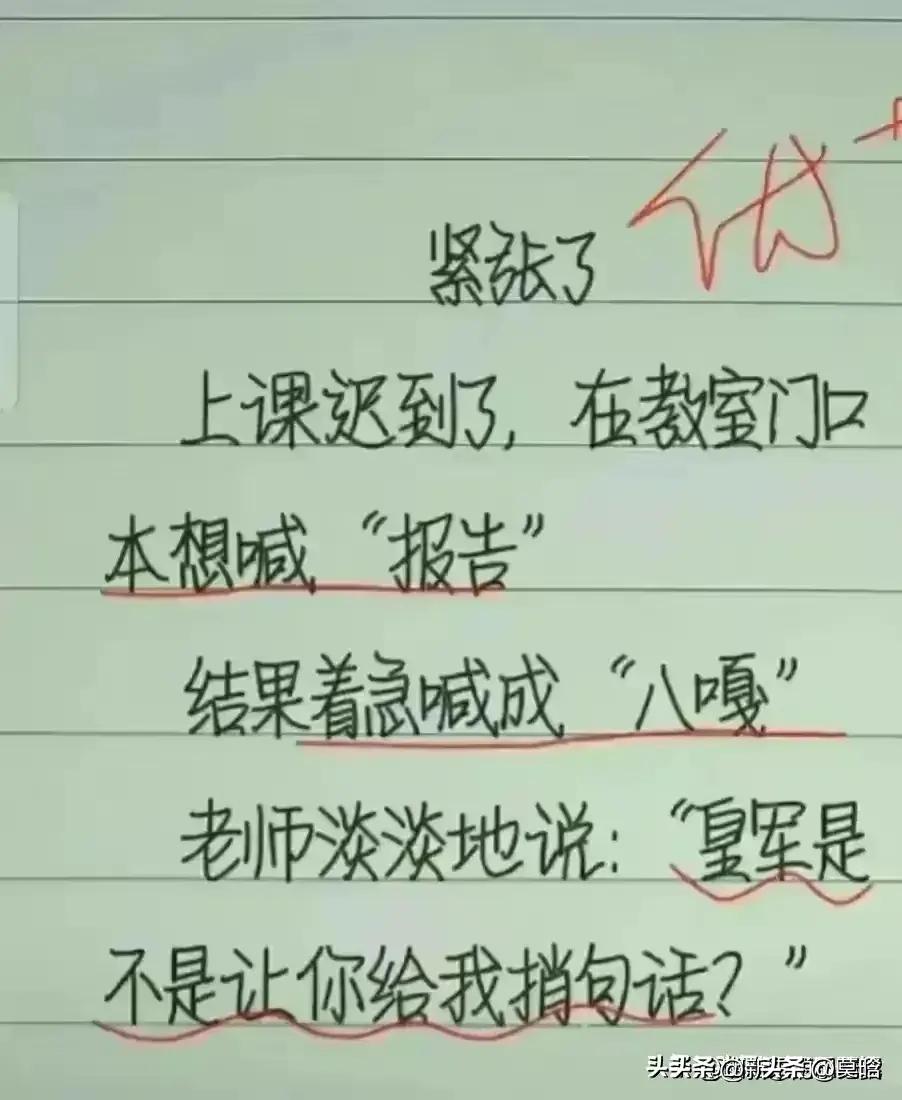 紧张了
上课迟到了，在教室门口
本想喊“报告”
结果着急喊成“八嘎”
老师淡淡地说：“皇军是
不是让你给我捎句话？”
头条